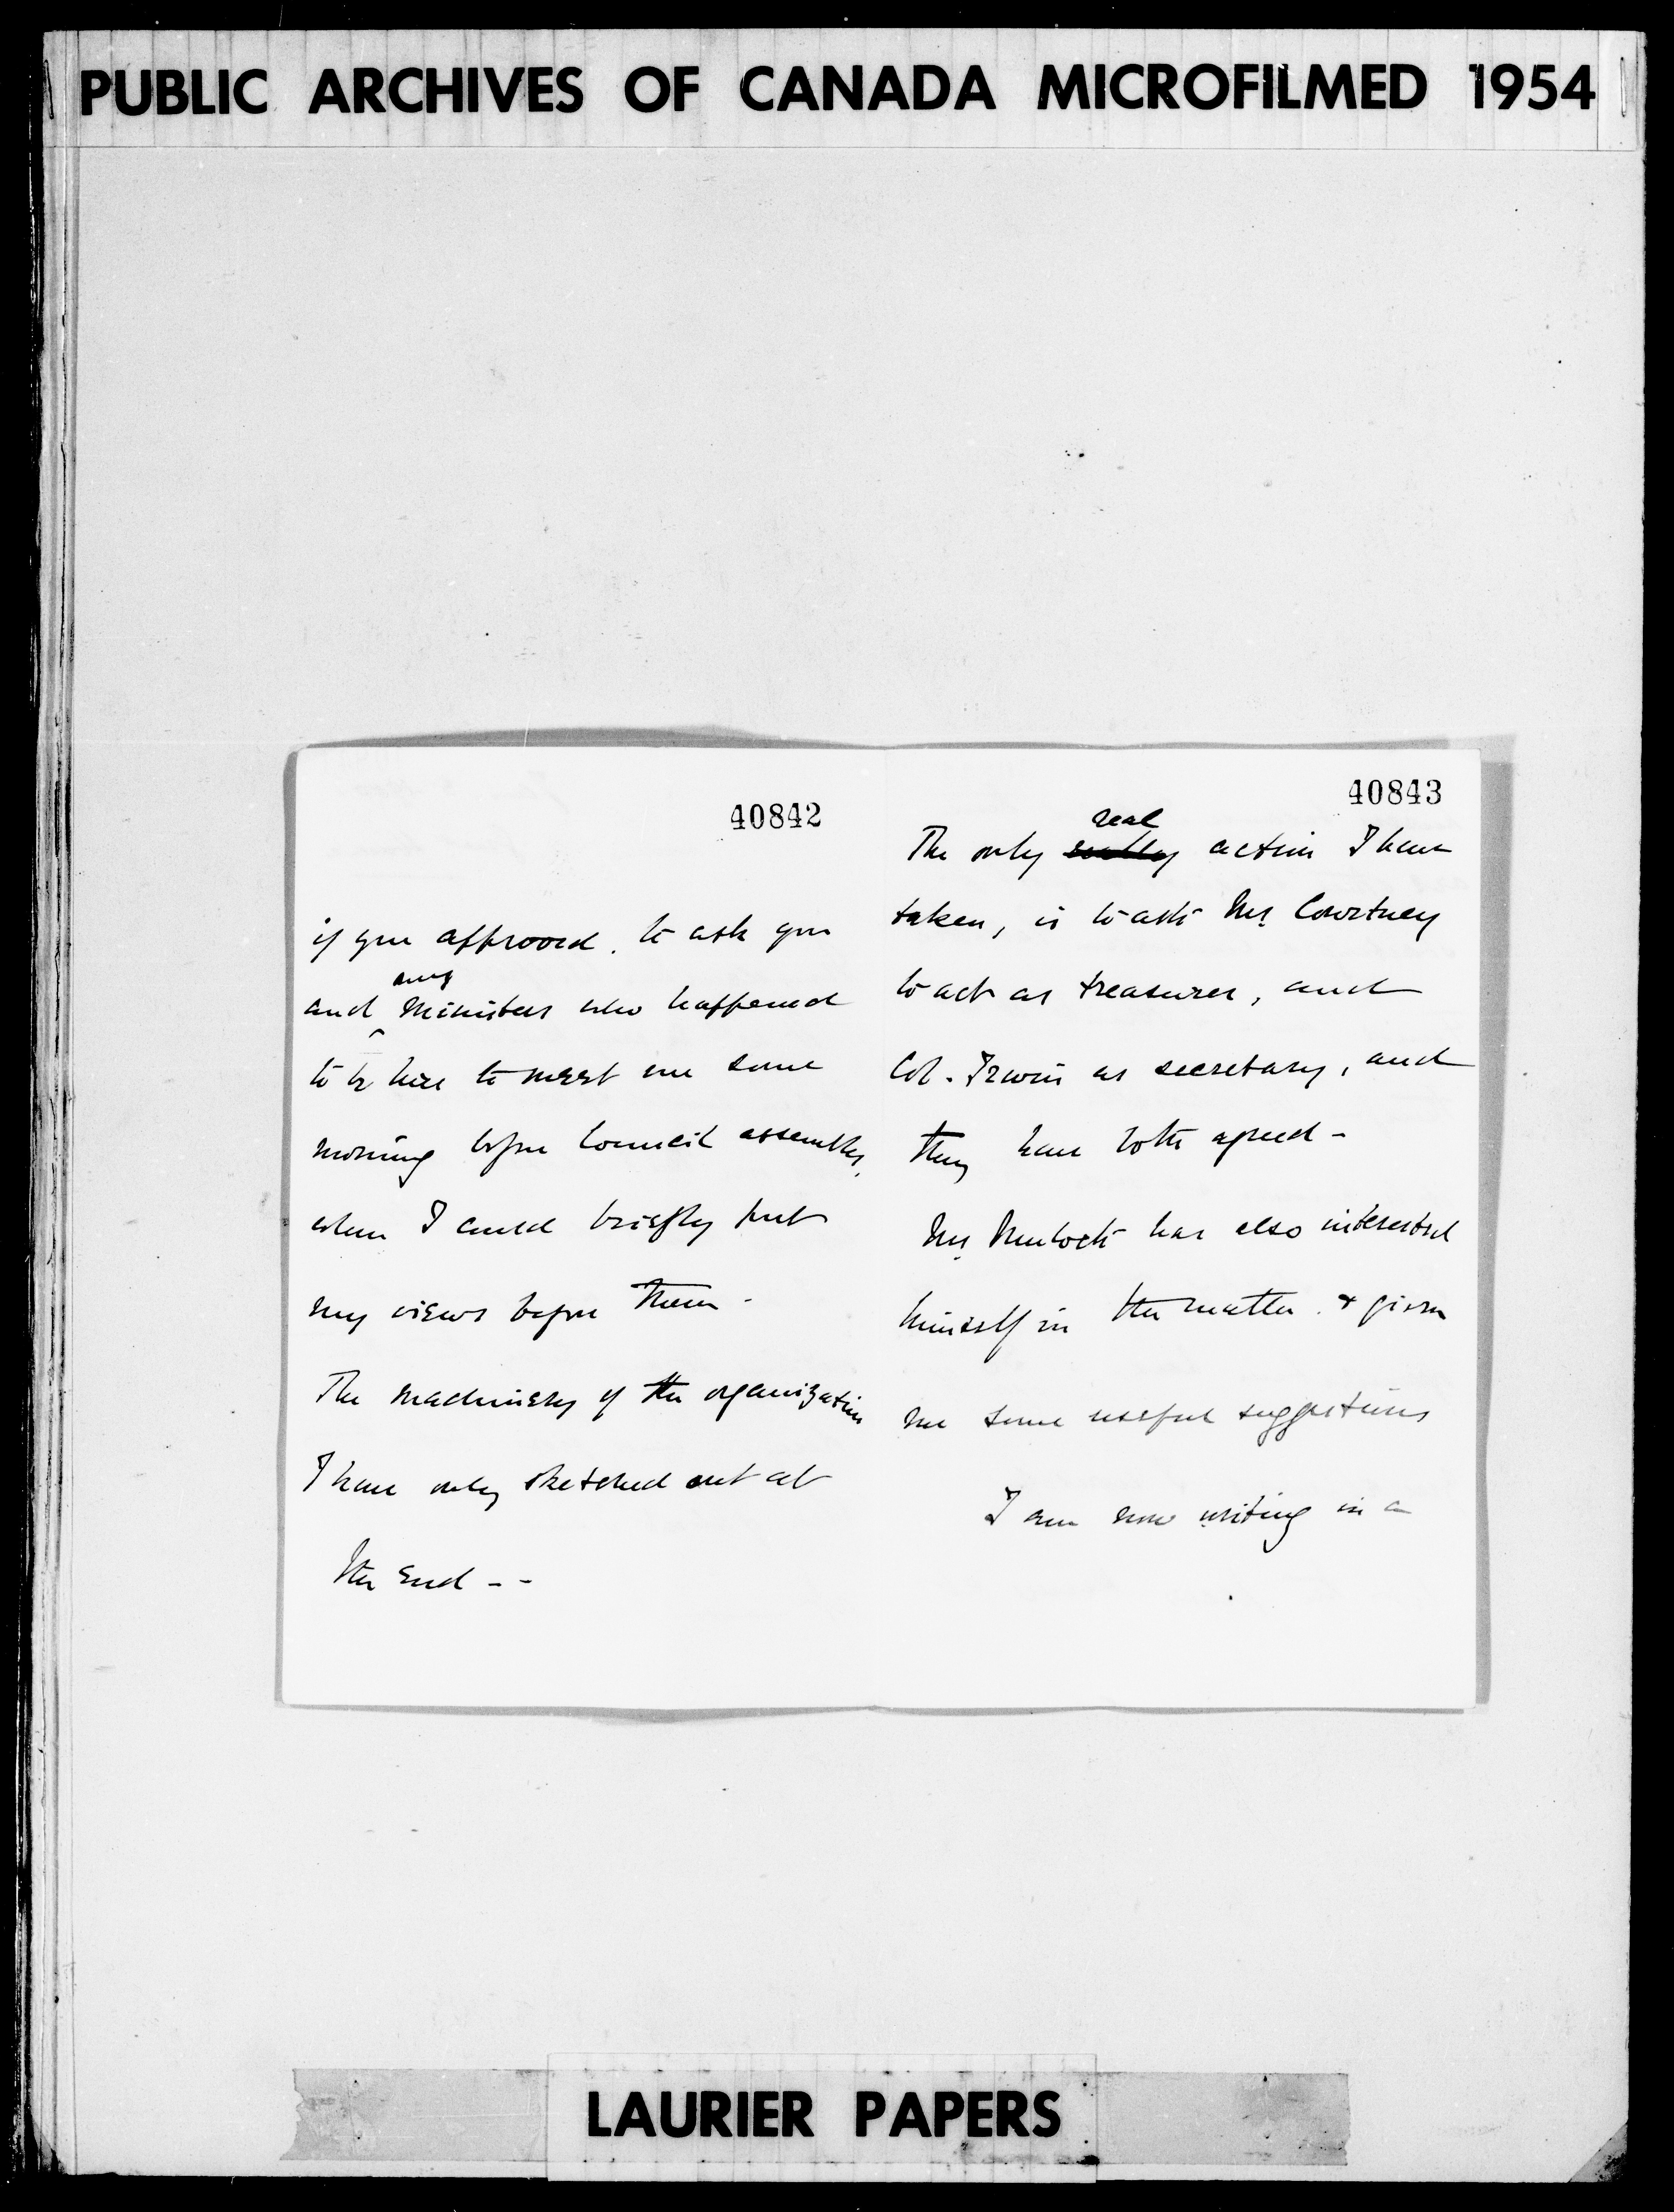 PUBLIC ARCHIVES OF CANADA MICROFILMED 1954
40842
if you approved, to ask you
any
and Ministers who happened
to be here to meet me some
morning before Council assembles,
when I could briefly put
my views before them -
The machinery of the organization
I have only sketched out at
the end - -
40843
real
The only really action I have
taken, is to ask Mr. Courtney
to act as treasurer, and
Col. Irwin as secretary, and
they have both agreed -
Mr. Mulock has also interested
himself in the matter & given
me some useful suggestions
I am now writing in a
LAURIER PAPERS